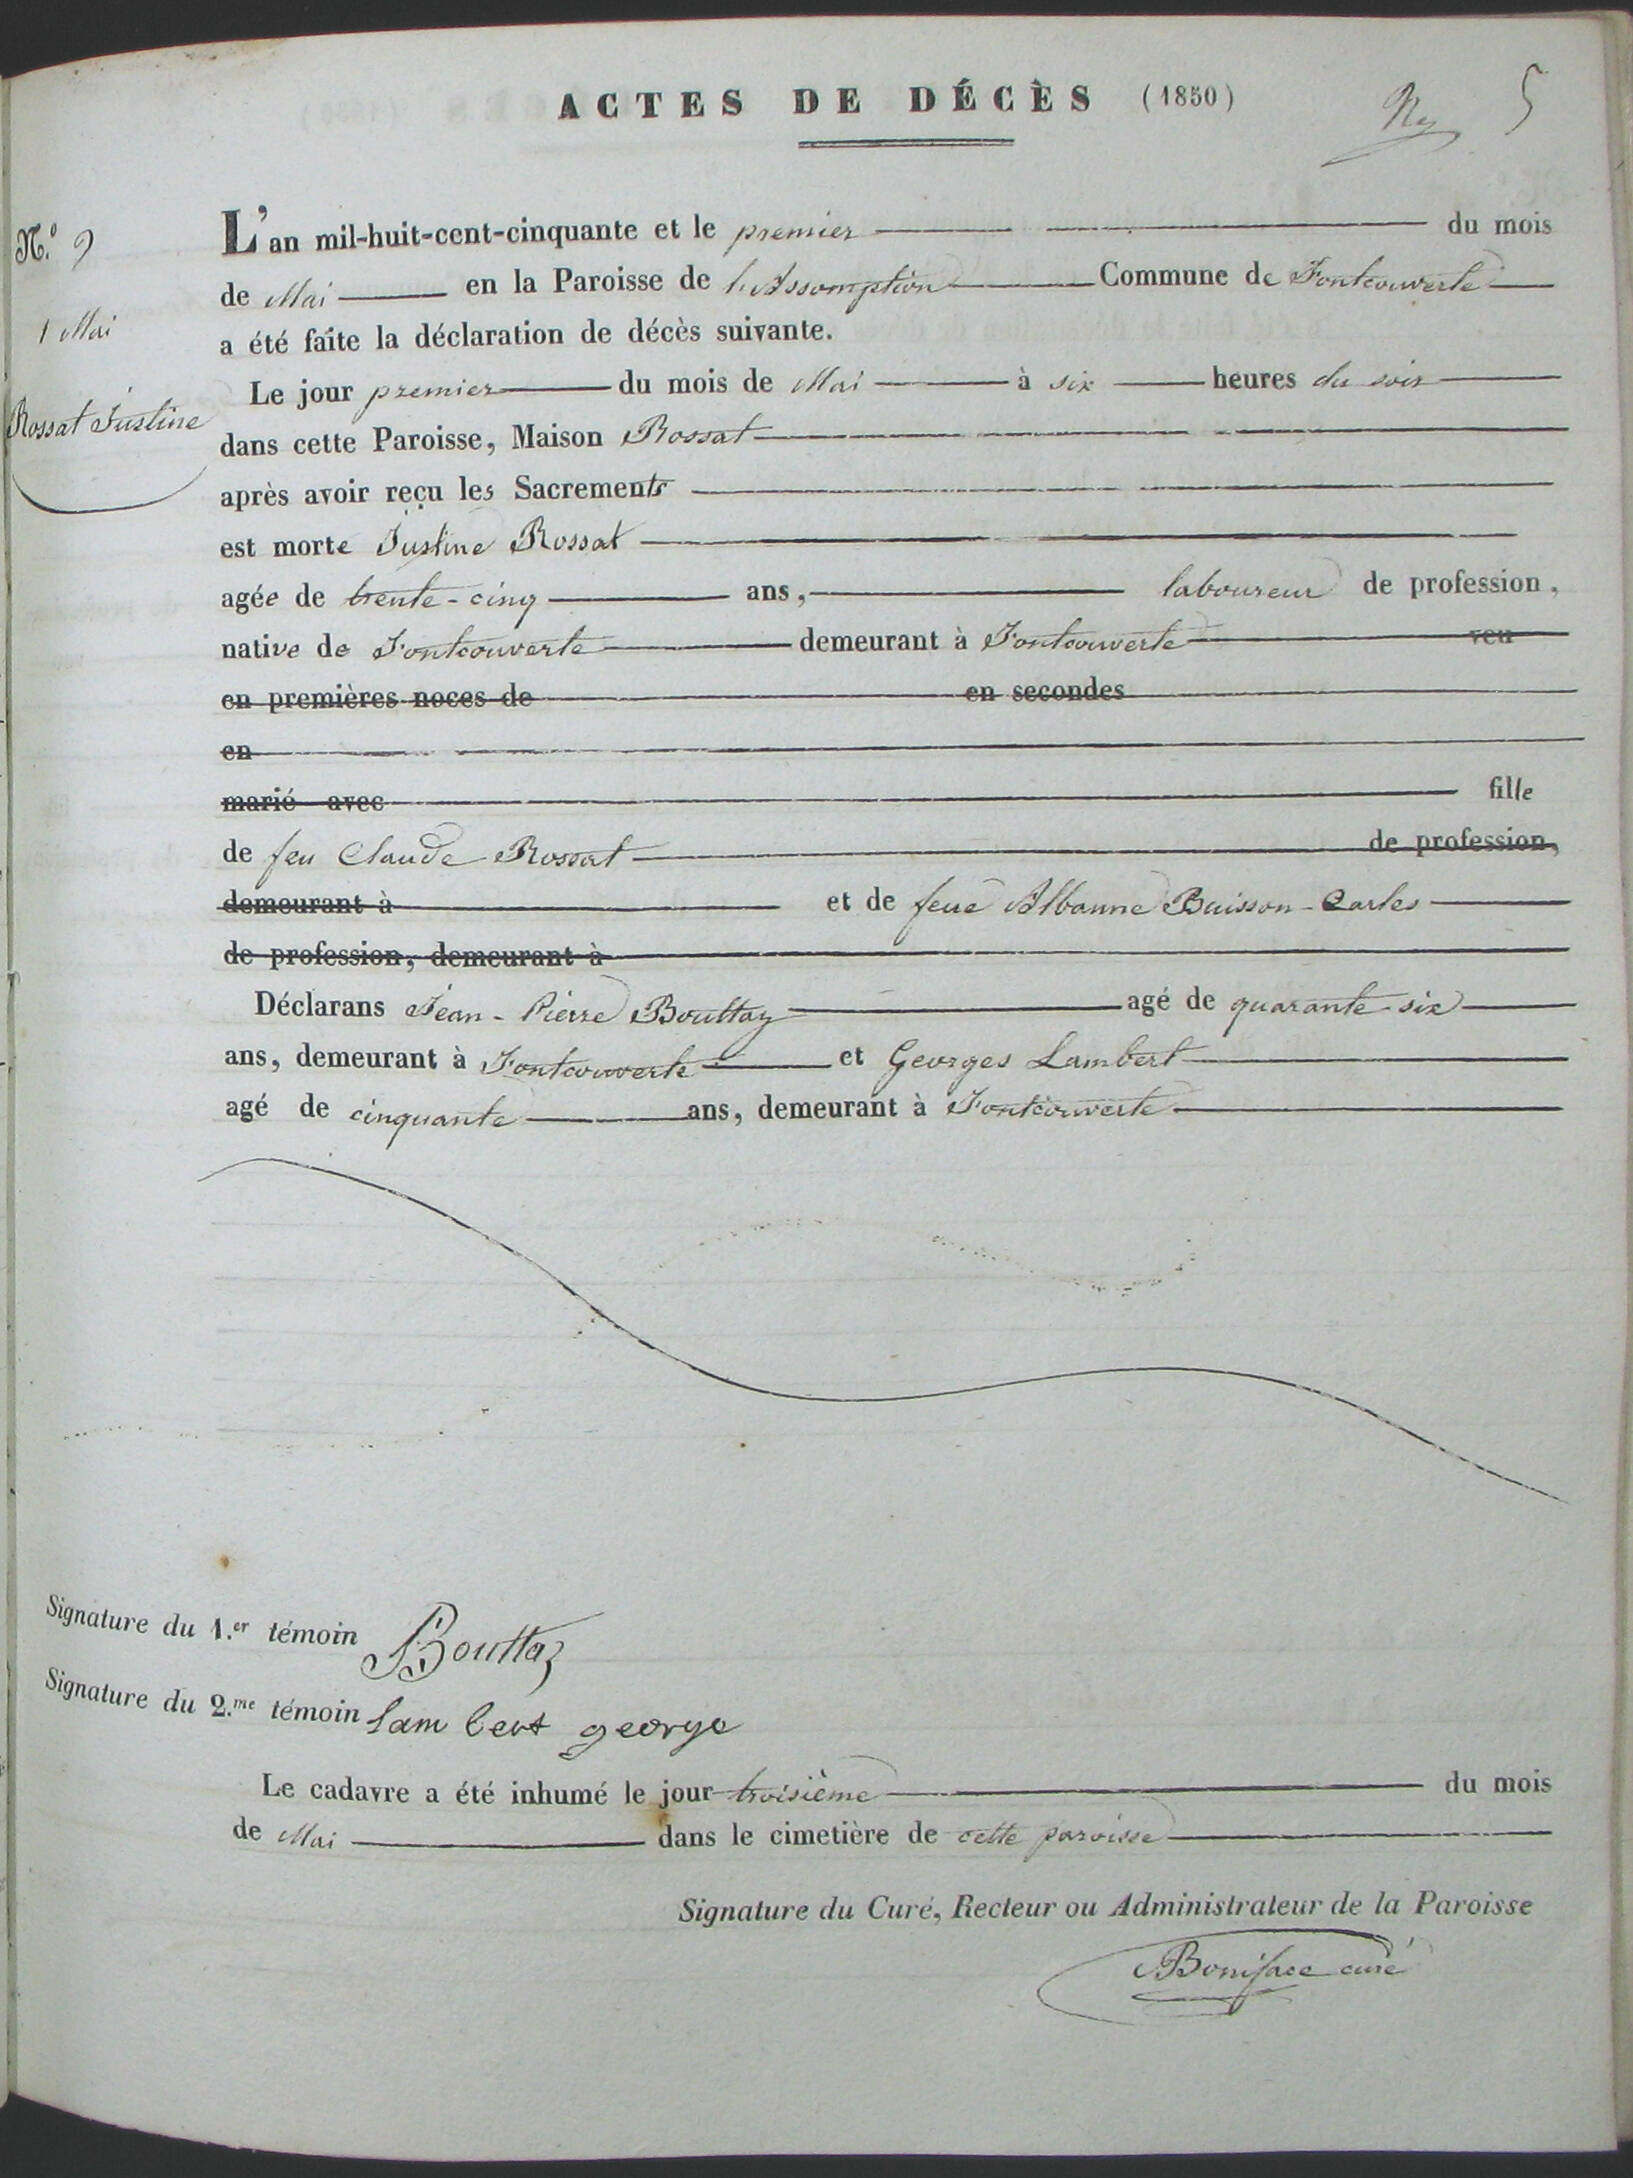 ACTES DE DÉCÈS (1850)
5
N.º 9
1 Mai
Rossat Justine
L'an mil-huit-cent-cinquante et le premier du mois
de Mai en la Paroisse de l'Assomption Commune de Fontcouverte
a été faite la déclaration de décès suivante.
Le jour premier du mois de Mai à six heures du soir
dans cette Paroisse, Maison Rossat
après avoir reçu les Sacrements
est morte Justine Rossat
agée de trente-cinq ans, laboureur de profession,
native de Fontcouverte demeurant à Fontcouverte veu
en premières noces de en secondes
en
marié avec fille
de feu Claude Rossat de profession,
demeurant à et de feue Albanne Buisson-Carles
de profession, demeurant à
Déclarans Jean-Pierre Bouttaz agé de quarante-six
ans, demeurant à Fontcouverte et Georges Lambert
agé de cinquante ans, demeurant à Fontcouverte
Signature du 1.er témoin Bouttaz
Signature du 2.me témoin lambert george
Le cadavre a été inhumé le jour troisième du mois
de Mai dans le cimetière de cette paroisse
Signature du Curé, Recteur ou Administrateur de la Paroisse
Boniface curé